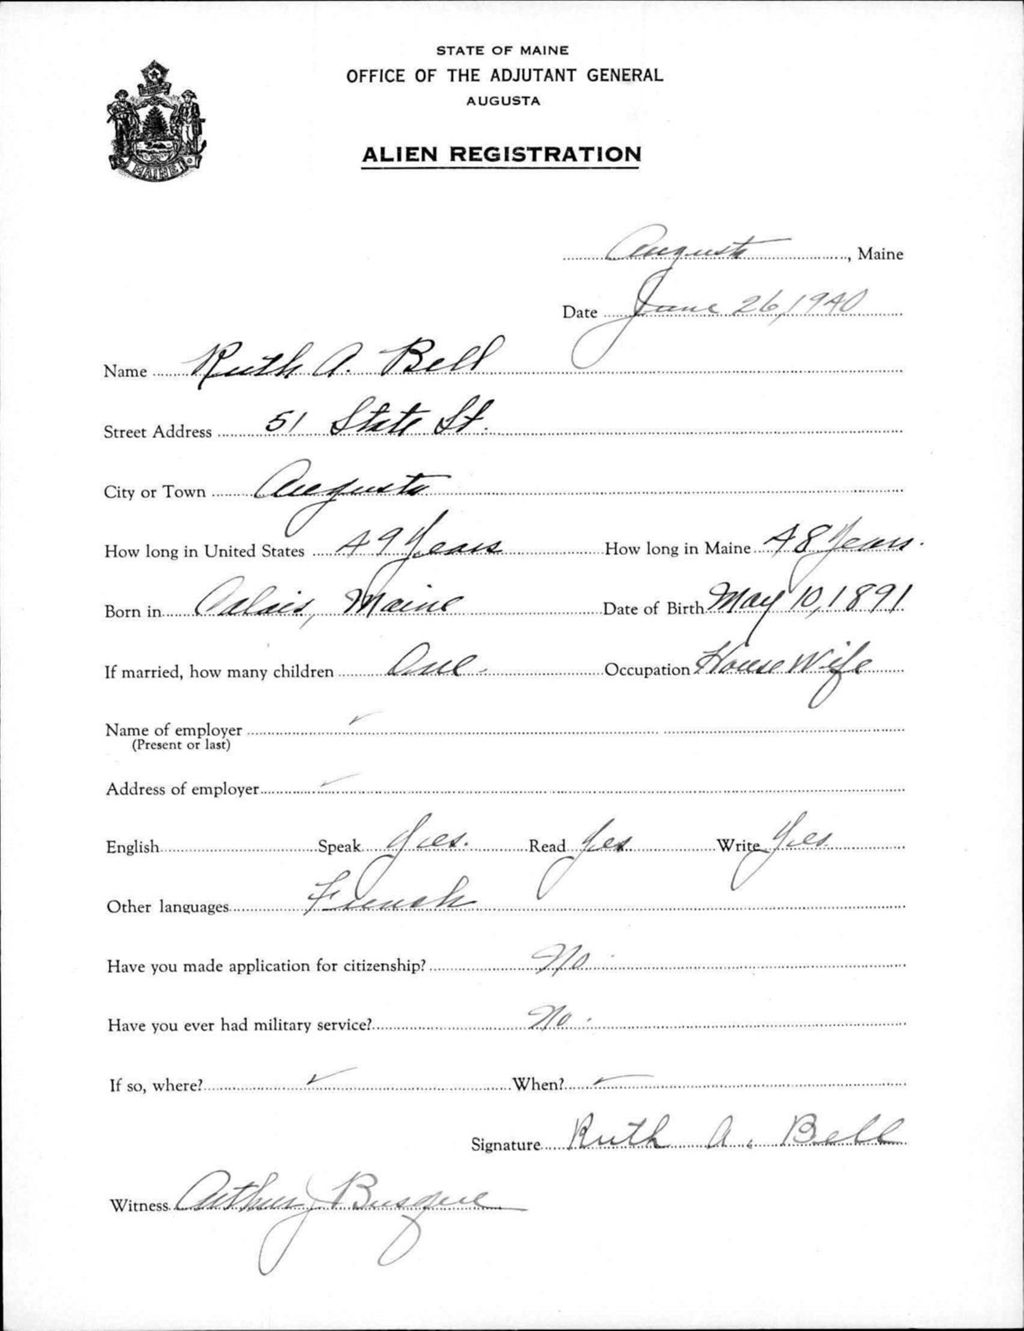 STATE OF MAINE
OFFICE OF THE ADJUTANT GENERAL
AUGUSTA
ALIEN REGISTRATION
MAINE
Augusta, Maine
Date June 26, 1940
Name Ruth A. Bell
Street Address 51 State St.
City or Town Augusta
How long in United States 49 Years How long in Maine 48 Years.
Born in Calais, Maine Date of Birth May 10, 1891
If married, how many children One. Occupation House Wife
Name of employer ✓
(Present or last)
Address of employer ✓
English Speak Yes. Read Yes. Write Yes
Other languages French
Have you made application for citizenship? No.
Have you ever had military service? No.
If so, where? ✓ When? ✓
Signature Ruth A. Bell
Witness Arthur J Busque